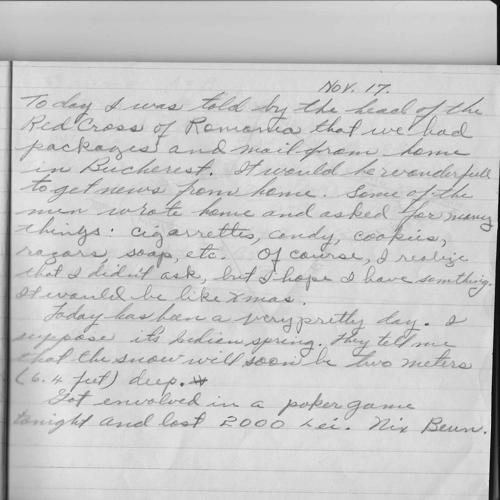 Nov. 17.
Today I was told by the head of the
Red Cross of Romania that we had
packages and mail from home
in Bucherest. It would be wonderfull
to get news from home. Some of the
men wrote home and asked for many
things: cigarrettes, candy, cookies,
razors, soap, etc. Of course, I realize
that I didn't ask, but I hope I have something.
It would be like Xmas.
Today has been a very pretty day. I
suppose it's Indien spring. They tell me
that the snow will soon be two meters
(6.4 feet) deep.
Got envolved in a poker game
tonight and lost 2000 Lei. Nix Beun.